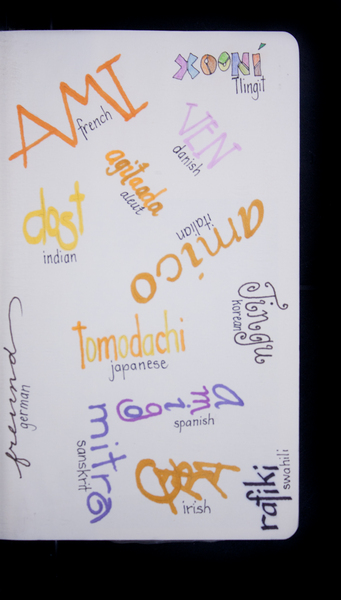 XOONÍ
Tlingit
AMI
french
VEN
danish
agitaada
aleut
dost
indian
amico
italian
Jingu
korean
tomodachi
japanese
freund
german
amig
spanish
mitra
sanskrit
irish
rafiki
swahili